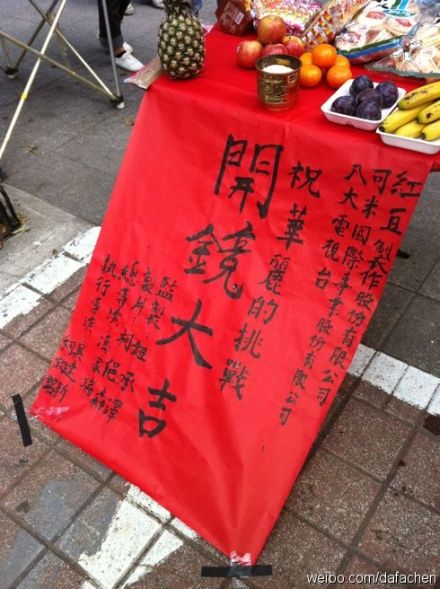 紅豆製作股份有限公司
可米國際事業股份有限公司
八大電視台
祝華麗的挑戰
開鏡大吉
監製 鈕承澤
製片
總導演
執行導演
weibo.com/dafachen